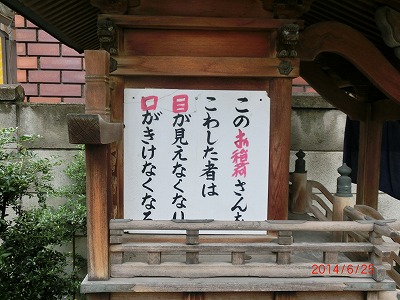 このお稲荷さんを
こわした者は
目が見えなくなり
口がきけなくなる
2014/6/25